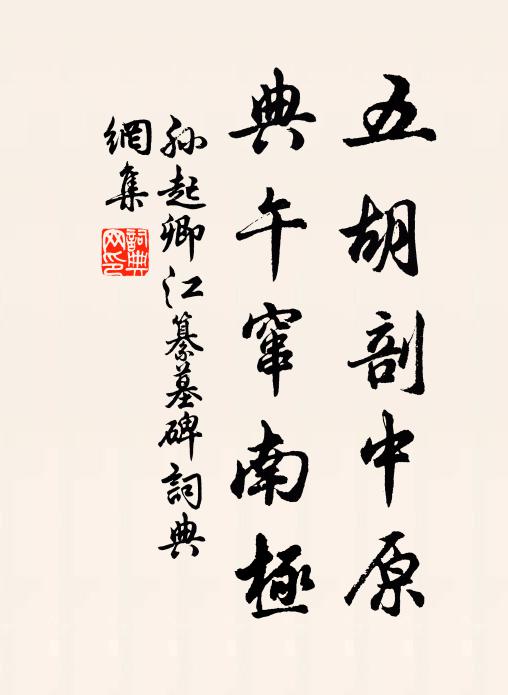 五胡剖中原
典午窜南極
孙起卿江纂墓碑詞典
網集
詞典
网印